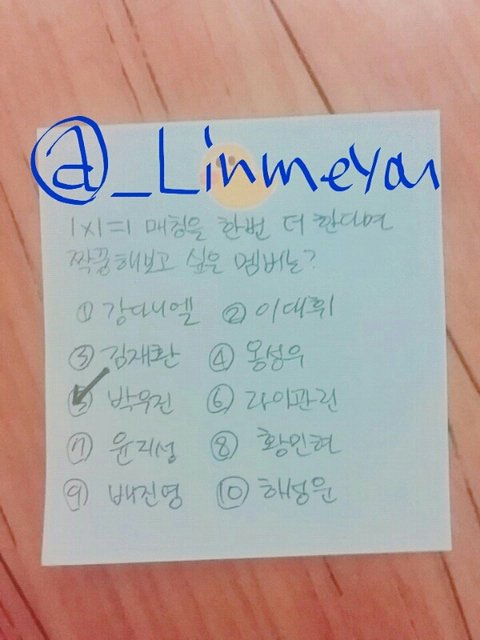 @_Linmeyai
1x1=1 매칭을 한번 더 한다면
짝꿍해보고 싶은 멤버는?
① 강다니엘 ② 이대휘
③ 김재환 ④ 옹성우
⑤ 박우진 ⑥ 라이관린
⑦ 윤지성 ⑧ 황민현
⑨ 배진영 ⑩ 하성운